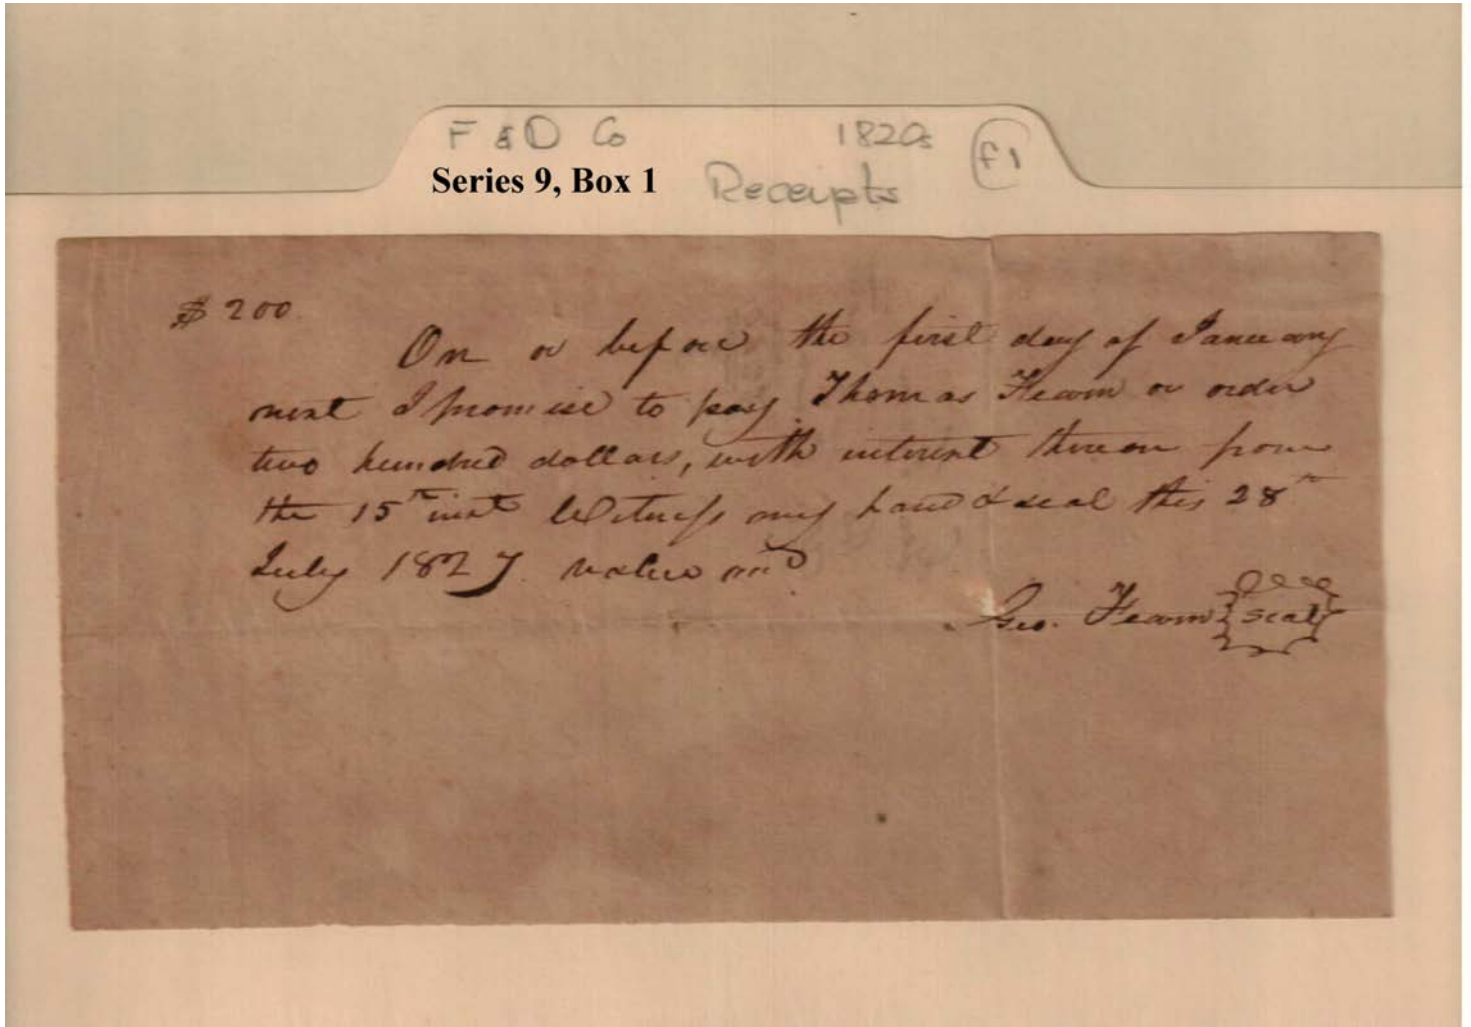 F & D Co 1820s f1
Series 9, Box 1 Receipts
$ 200.
On or before the first day of January
next I promise to pay Thomas Fearn or order
two hundred dollars, with interest thereon from
the 15th inst Witness my hand & seal this 28th
July 1827. value recd
Geo. Fearn seal